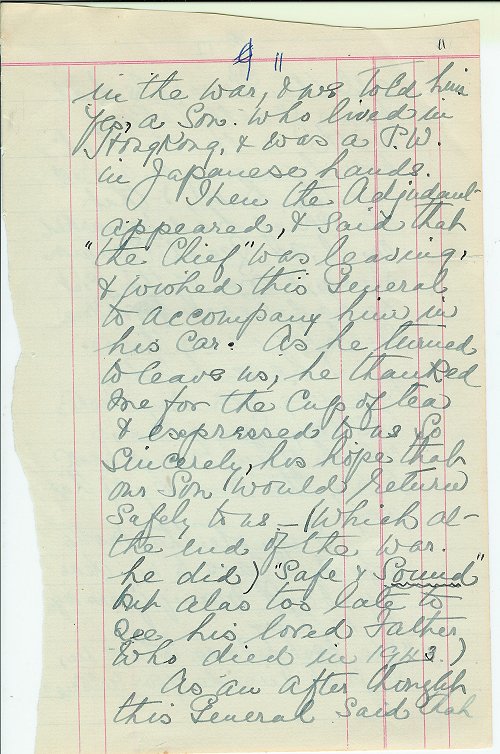 9 11 11
in the war, & we told him
Yes, a Son. Who lived in
HongKong, & was a P.W.
in Japanese hands.
Then the Adjudant
appeared, & Said that
"the Chief" was leaving,
& wished this General
to accompany him in
his Car. As he turned
to leave us, he thanked
me for the Cup of tea
& expressed to us So
Sincerely, his hope that
our Son would return
Safely to us – (Which at
the end of the war.
he did) "Safe & Sound"
but alas too late to
See his loved Father
Who died in 1943.)
As an after thought
this General Said that